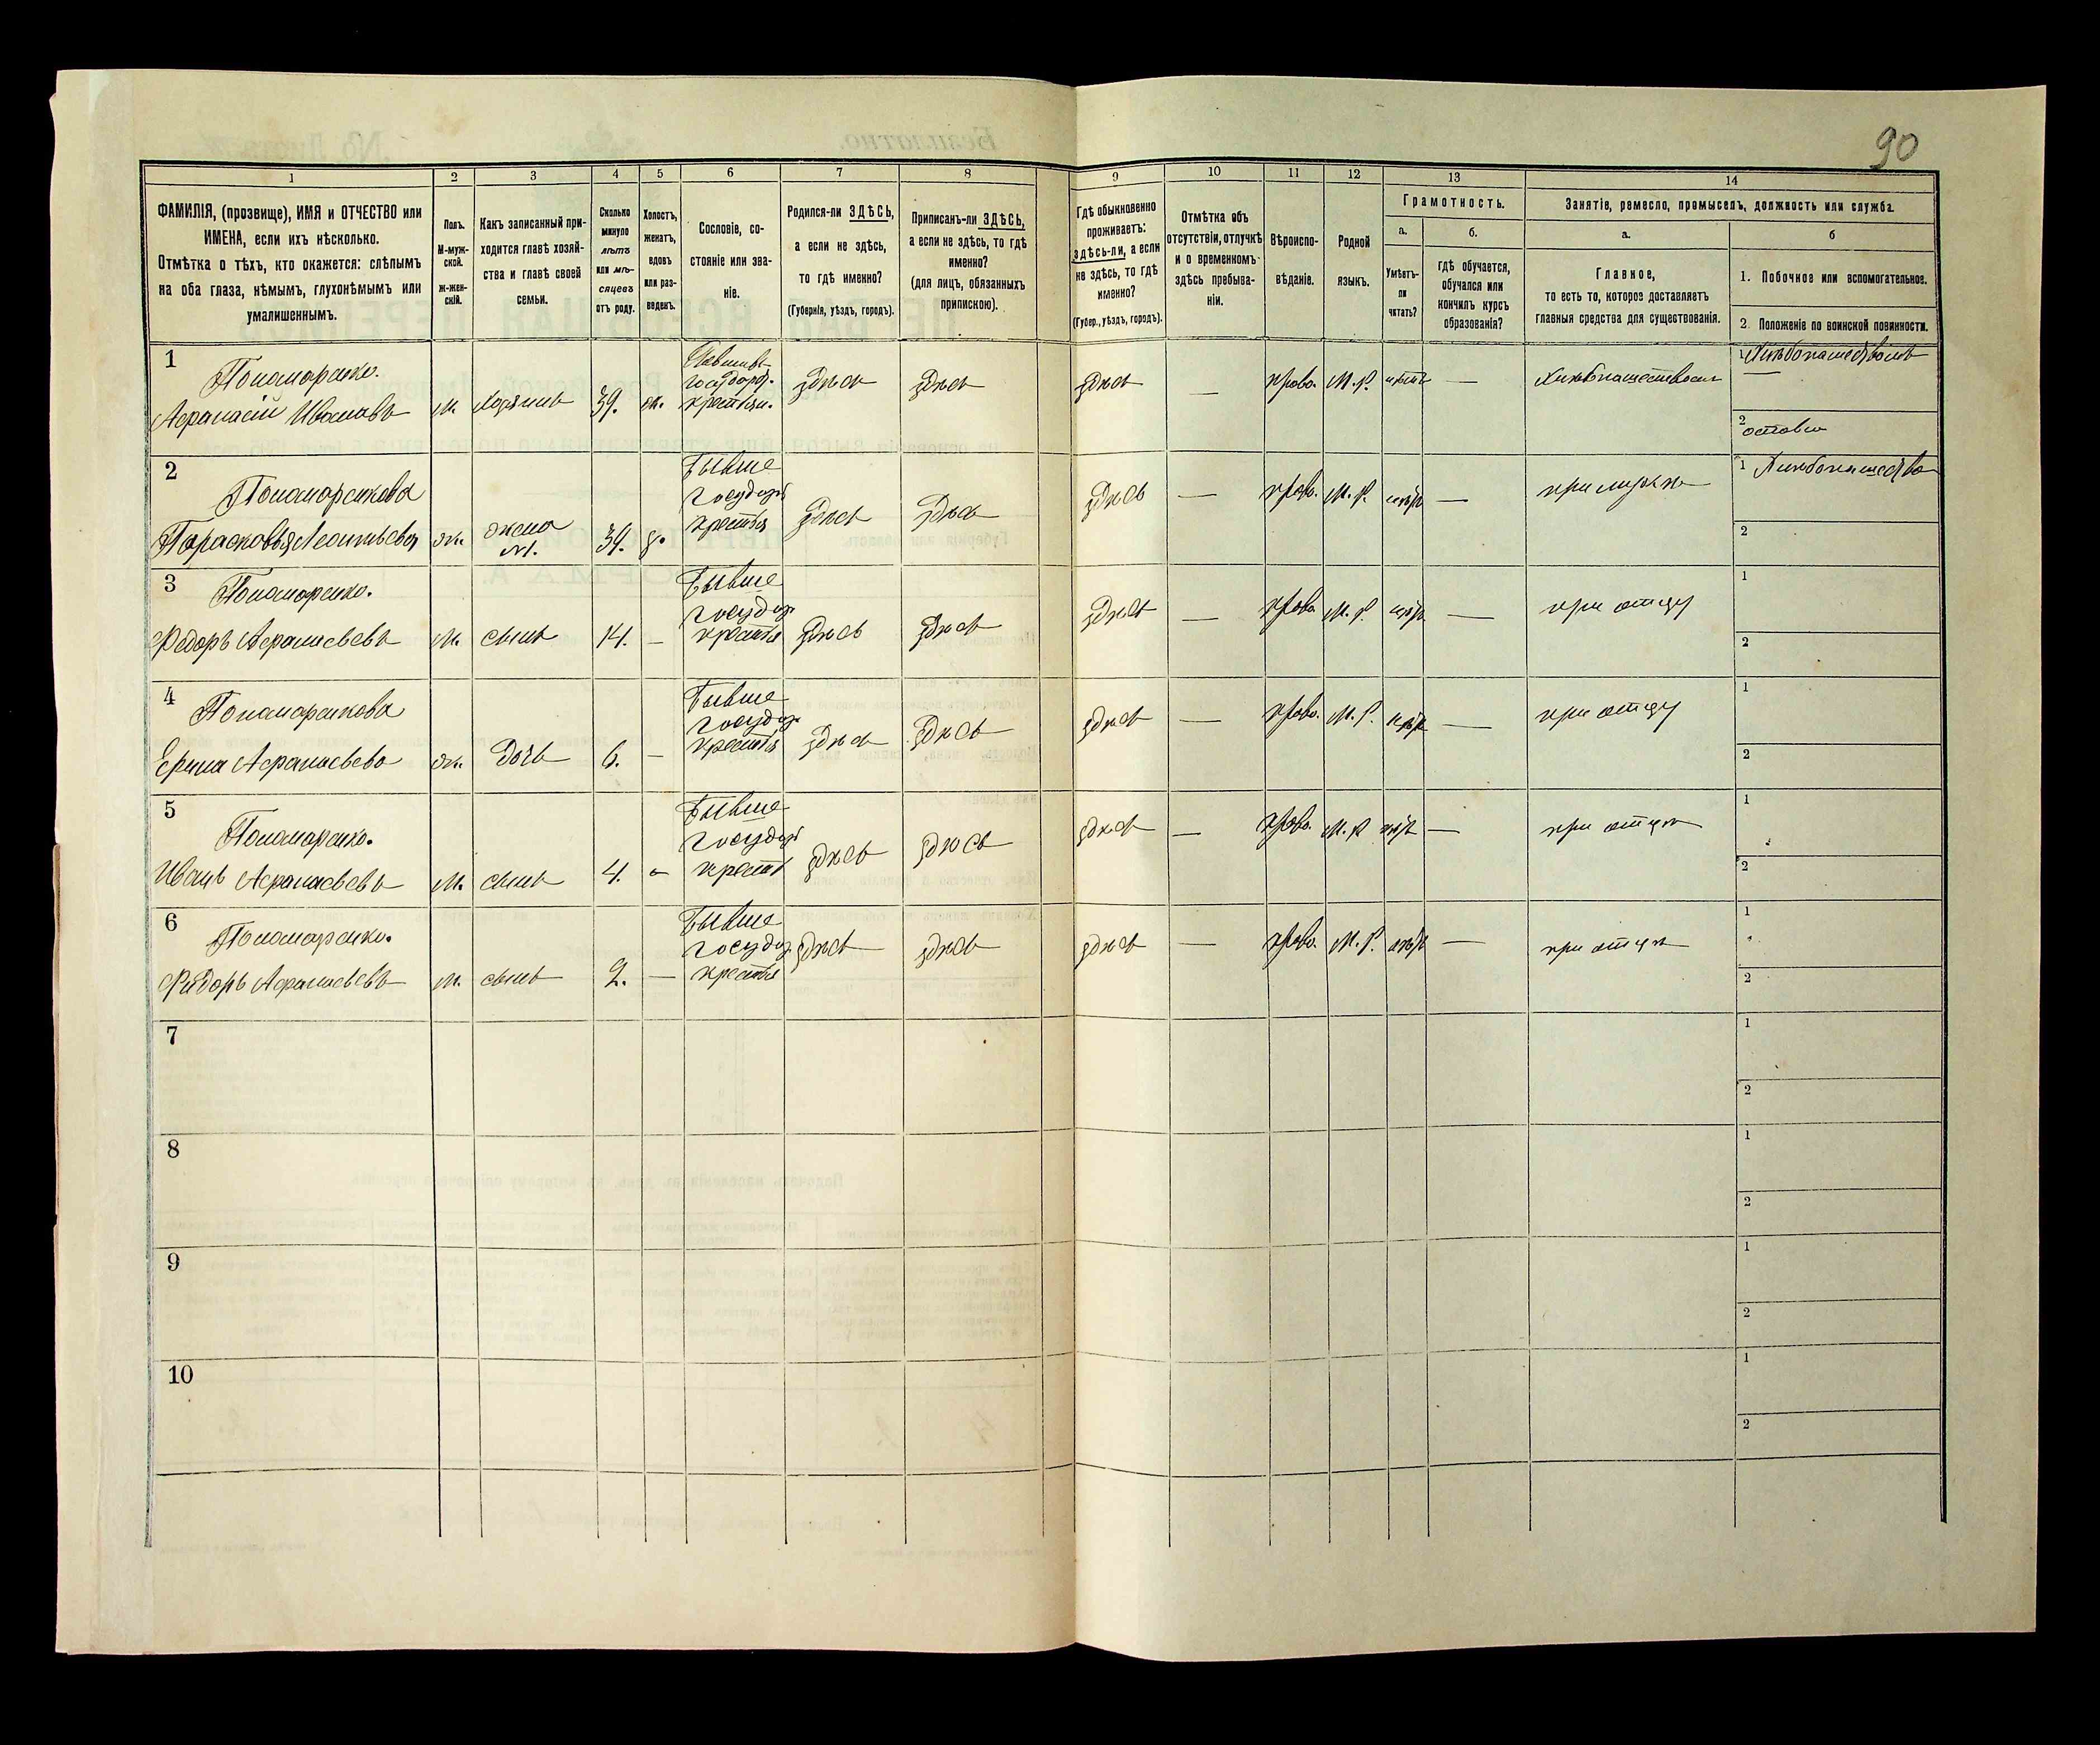 90
1
2
3
4
5
6
7
8
9
10
11
12
13
14
ФАМИЛІЯ, (прозвище), ИМЯ и ОТЧЕСТВО или
ИМЕНА, если ихъ нѣсколько.
Отмѣтка о тѣхъ, кто окажется: слѣпымъ
на оба глаза, нѣмымъ, глухонѣмымъ или
умалишеннымъ.
Полъ.
М-муж-
ской.
ж-жен-
скій.
Какъ записанный при-
ходится главѣ хозяй-
ства и главѣ своей
семьи.
Сколько
минуло
лѣтъ
или мѣ-
сяцевъ
отъ роду.
Холостъ,
женатъ,
вдовъ
или раз-
веденъ.
Сословіе, со-
стояніе или зва-
ніе.
Родился-ли ЗДѢСЬ,
а если не здѣсь,
то гдѣ именно?
(Губернія, уѣздъ, городъ).
Приписанъ-ли ЗДѢСЬ,
а если не здѣсь, то гдѣ
именно?
(для лицъ, обязанныхъ
припискою).
Гдѣ обыкновенно
проживаетъ:
здѣсь-ли, а если
не здѣсь, то гдѣ
именно?
(Губер., уѣздъ, городъ).
Отмѣтка объ
отсутствіи, отлучкѣ
и о временномъ
здѣсь пребыва-
ніи.
Вѣроиспо-
вѣданіе.
Родной
языкъ.
Грамотность.
а.
б.
Умѣетъ-
ли
читать?
гдѣ обучается,
обучался или
кончилъ курсъ
образованія?
Занятіе, ремесло, промыселъ, должность или служба.
а.
б
Главное,
то есть то, которое доставляетъ
главныя средства для существованія.
1. Побочное или вспомогательное.
2. Положеніе по воинской повинности.
1
Пономаренко.
Афанасій Ивановъ
м.
хозяинъ
39.
ж.
государ.
крестьян.
здѣсь
здѣсь
здѣсь
—
право.
М. Р.
нѣтъ
—
1
2
2
Пономаренкова
Парасковья Леонтьева
ж.
жена
№1.
39.
Бывше
государ
крестья
здѣсь
здѣсь
здѣсь
—
право.
М. Р.
нѣтъ
—
при мужѣ
1
Хлебопашество
2
3
Пономаренко.
Федоръ Афанасьевъ
м.
сынъ
14.
—
Бывше
государ
крестья
здѣсь
здѣсь
здѣсь
—
право
М. Р.
нѣтъ
—
при отцу
1
2
4
Пономаренкова
Ерина Афанасьева
ж.
дочь
6.
—
Бывше
государ
крестья
здѣсь
здѣсь
здѣсь
—
право.
М. Р.
нѣтъ
—
при отцу
1
2
5
Пономаренко.
Иванъ Афанасьевъ
м.
сынъ
4.
—
Бывше
государ
крест
здѣсь
здѣсь
здѣсь
—
право.
М. Р
нѣтъ
—
при отцѣ
1
2
6
Пономаренко.
Фидоръ Афанасьевъ
м.
сынъ
2.
—
Бывше
государ
крестья
здѣсь
здѣсь
здѣсь
—
право.
М. Р.
нѣтъ
—
при отцѣ
1
2
7
1
2
8
1
2
9
1
2
10
1
2